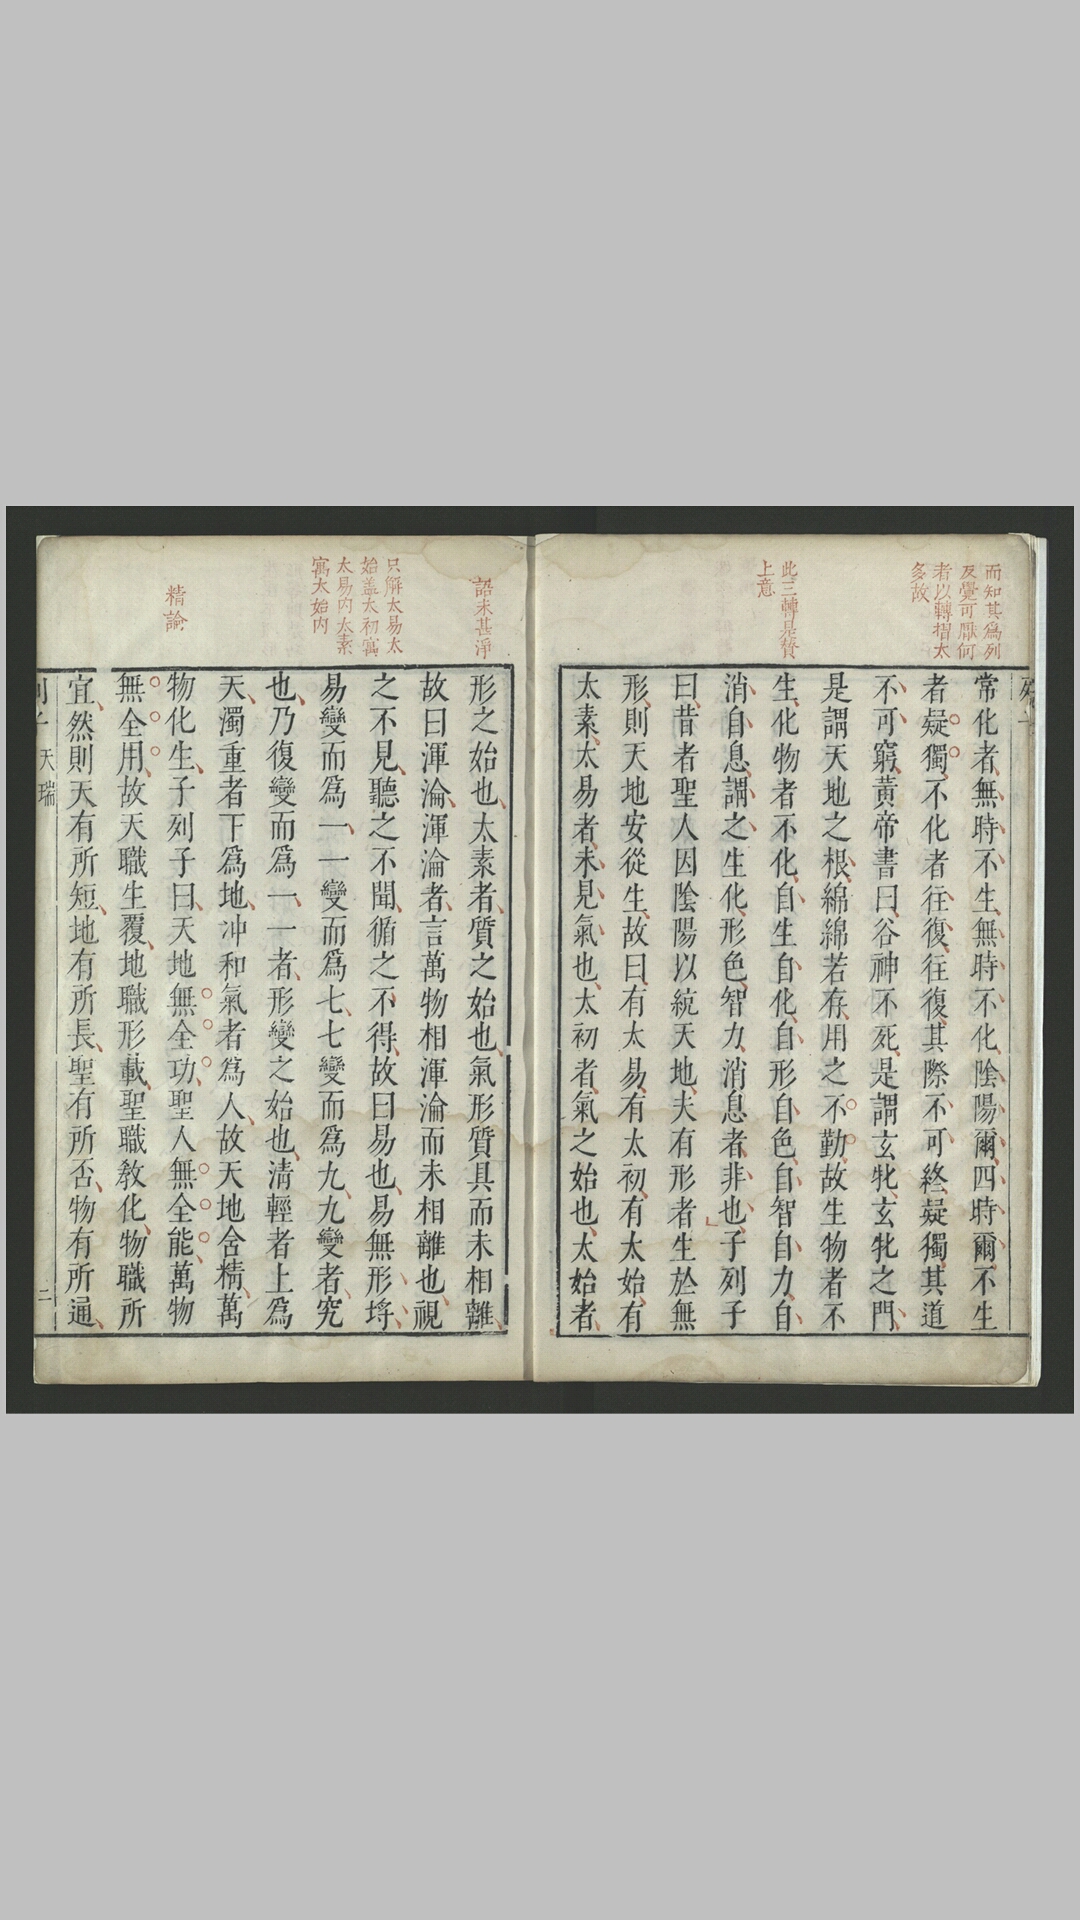 而知其為列
反覺可厭何
者以轉摺太
多故
此三轉是贅
上意
常化者無時不生無時不化陰陽爾四時爾不生
者疑獨不化者往復往復其際不可終疑獨其道
不可窮黃帝書曰谷神不死是謂玄牝玄牝之門
是謂天地之根綿綿若存用之不勤故生物者不
生化物者不化自生自化自形自色自智自力自
消自息謂之生化形色智力消息者非也子列子
曰昔者聖人因陰陽以統天地夫有形者生於無
形則天地安從生故曰有太易有太初有太始有
太素太易者未見氣也太初者氣之始也太始者
語未甚淨
只解太易太
始蓋太初寓
太易內太素
寓太始內
精論
形之始也太素者質之始也氣形質具而未相離
故曰渾淪渾淪者言萬物相渾淪而未相離也視
之不見聽之不聞循之不得故曰易也易無形埒
易變而為一一變而為七七變而為九九變者究
也乃復變而為一一者形變之始也清輕者上為
天濁重者下為地冲和氣者為人故天地含精萬
物化生子列子曰天地無全功聖人無全能萬物
無全用故天職生覆地職形載聖職教化物職所
宜然則天有所短地有所長聖有所否物有所通
天瑞
二